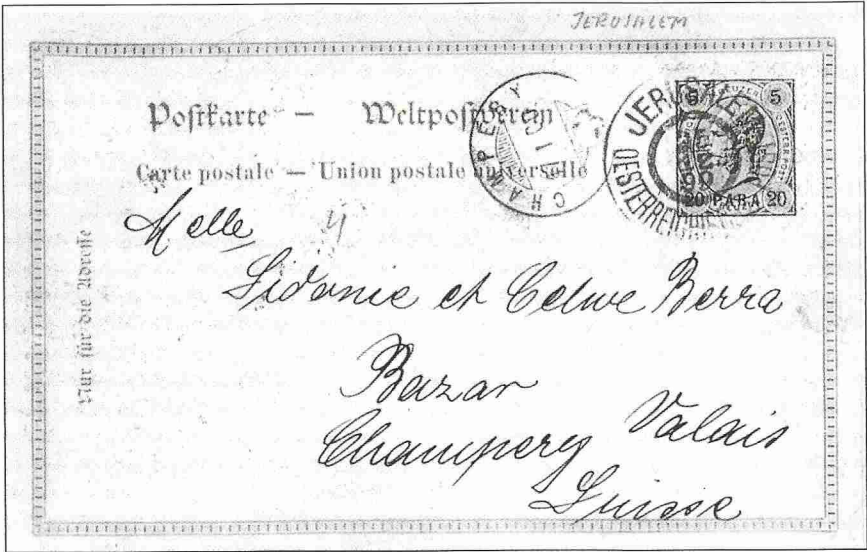 JERUSALEM
Postkarte — Weltpostverein
Carte postale — Union postale universelle
CHAMPERY
JERUSALEM
OESTERREICHISCHE
5 5
20 PARA 20
Nur für die Adresse
Melle
Sidonie et Celine Berra
Bazar
Champery Valais
Suisse